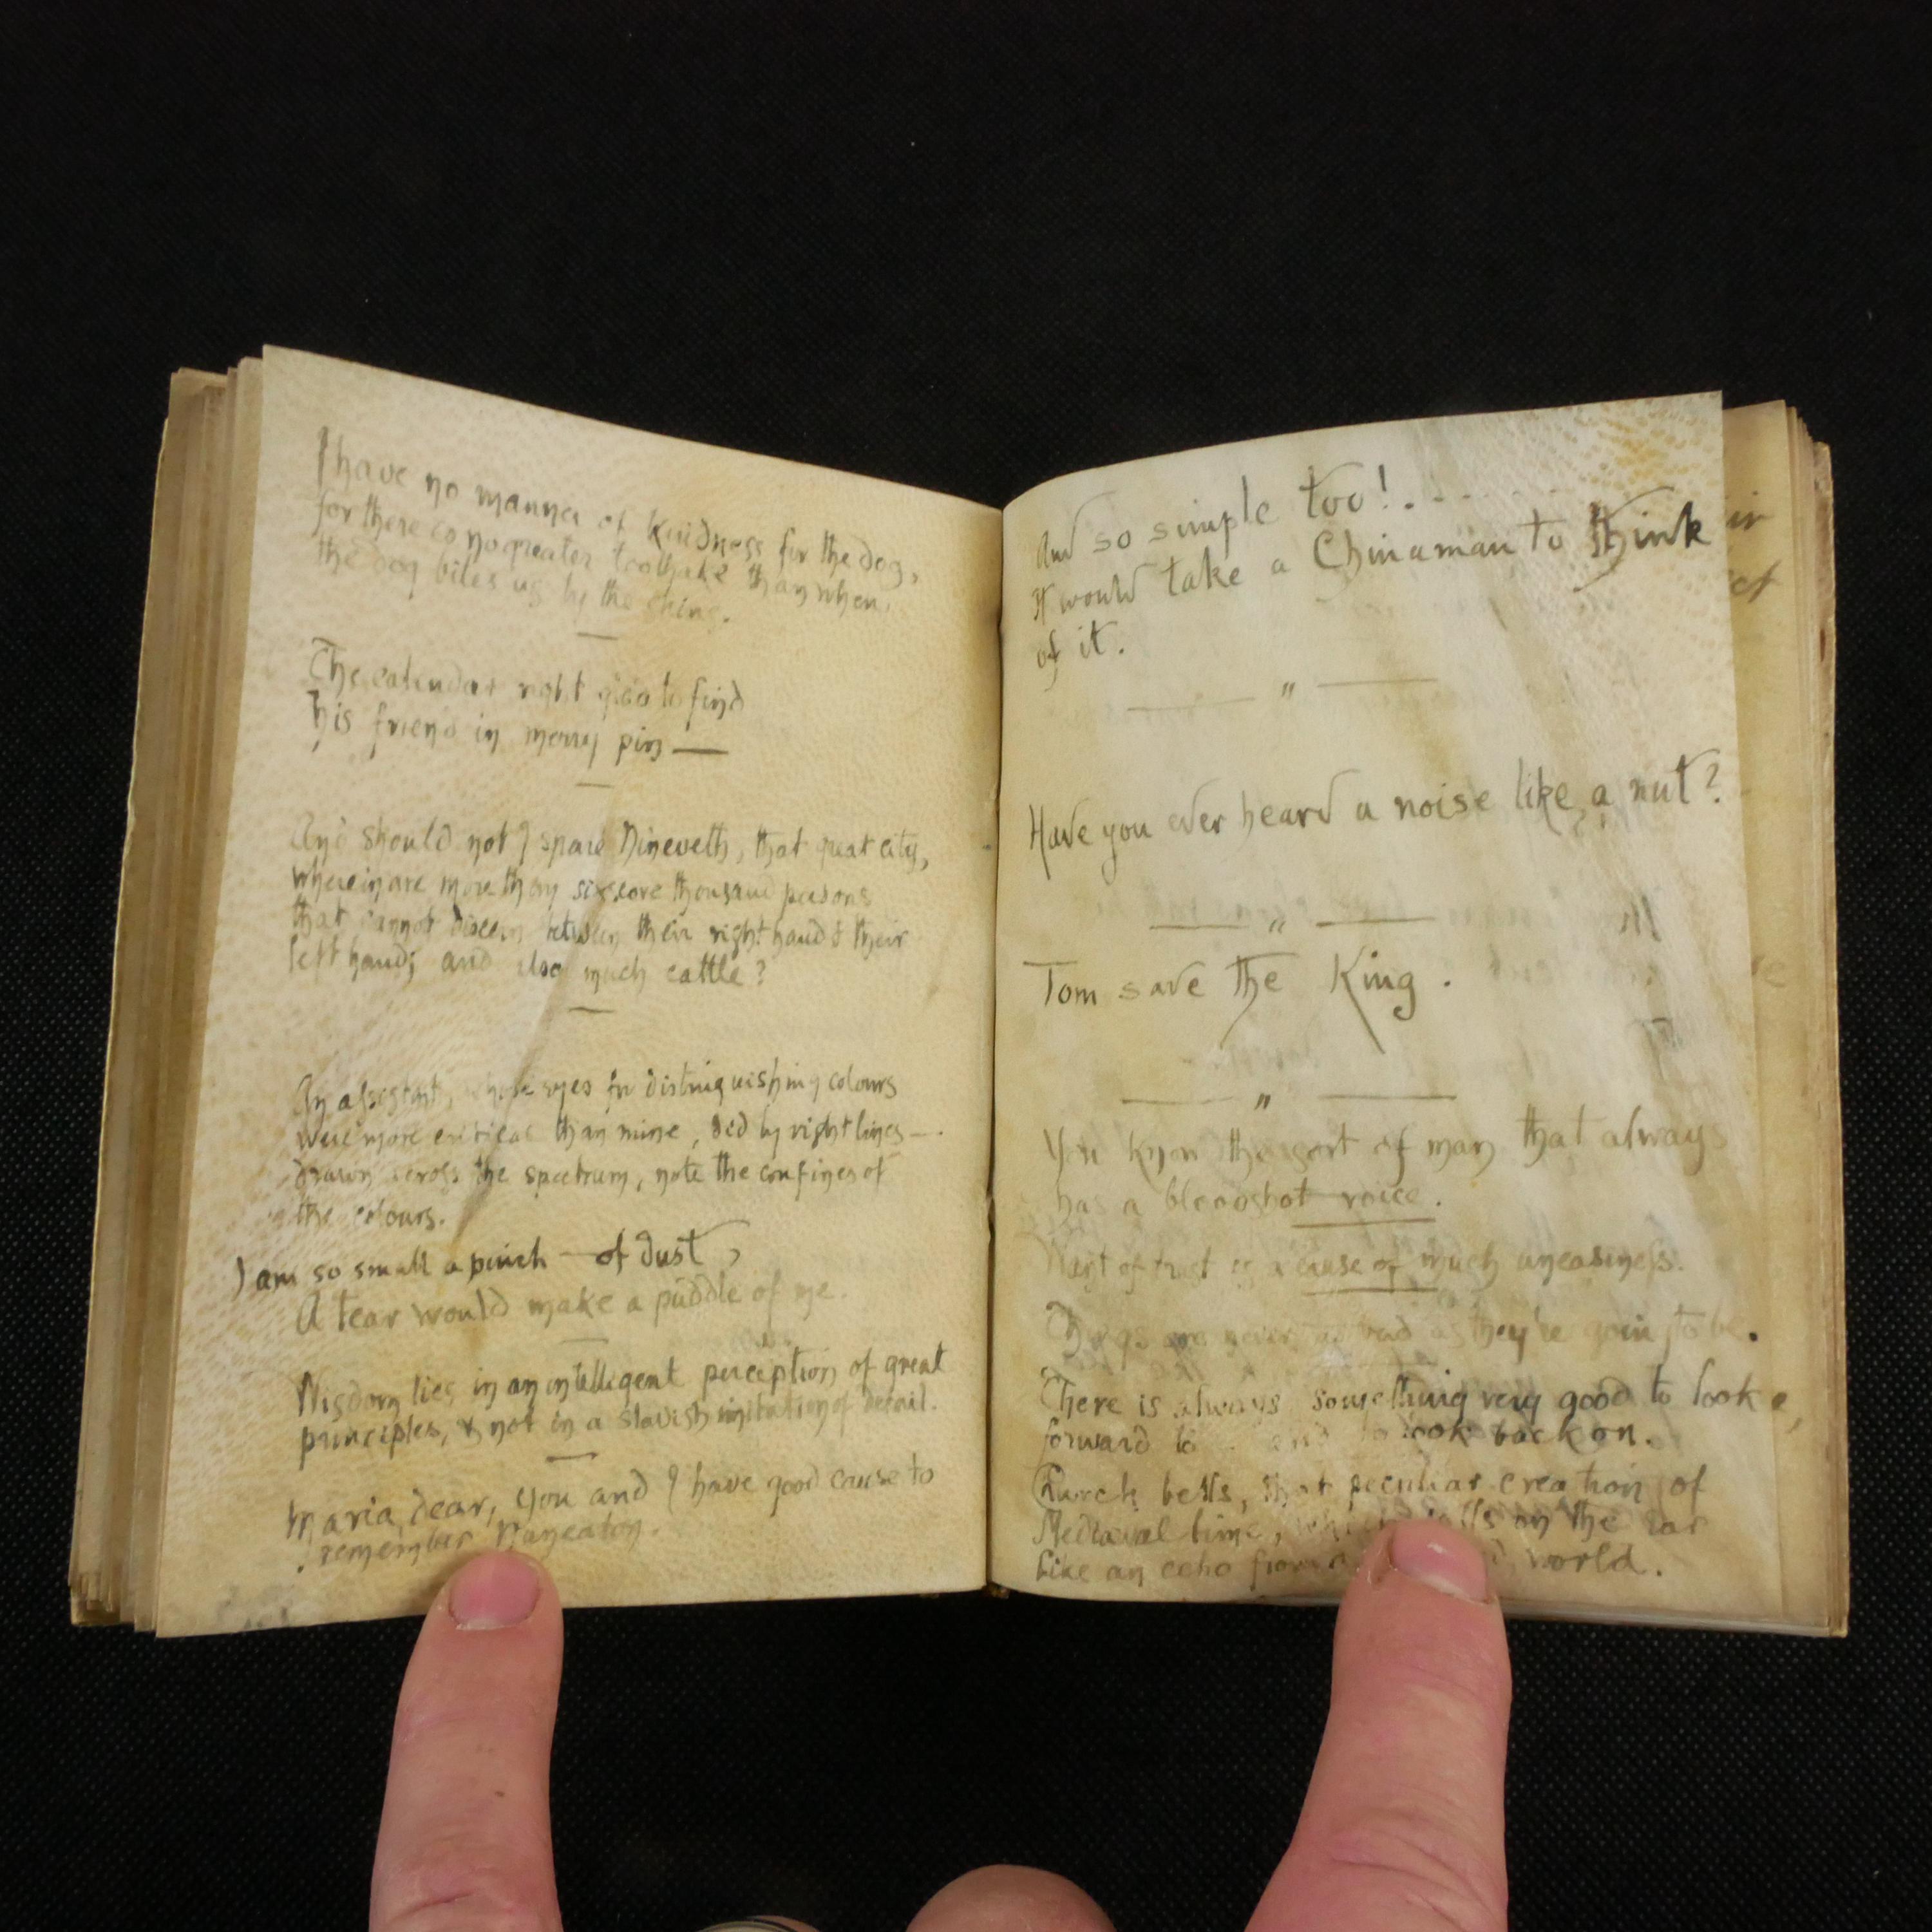 I have no manner of kindness for the dog,
for there is no greater toothake than when
the dog bites us by the shins.
The calendar right glad to find
his friend in merry pin —
And should not I spare Nineveth, that great city,
wherein are more than sixscore thousand persons
that cannot discern between their right hand & their
left hand; and also much cattle?
An assistant, whose eyes for distinguishing colours
were more critical than mine, did by right lines —
drawn across the spectrum, note the confines of
the colours.
I am so small a pinch — of dust,
A tear would make a puddle of me.
Wisdom lies in an intelligent perception of great
principles, & not in a slavish imitation of detail.
Maria dear, you and I have good cause to
remember Nuneaton.
And so simple too! . - - - - -
It would take a Chinaman to think
of it.
— " —
Have you ever heard a noise like a nut?
— " —
Tom save the King.
— " —
You know the sort of man that always
has a bloodshot voice.
Want of trust is a cause of much uneasiness.
Things are never as bad as they're goin' to be.
There is always something very good to look
forward to and to look back on.
Church bells, that peculiar creation of
Mediaeval time, which falls on the ear
like an echo from a world.